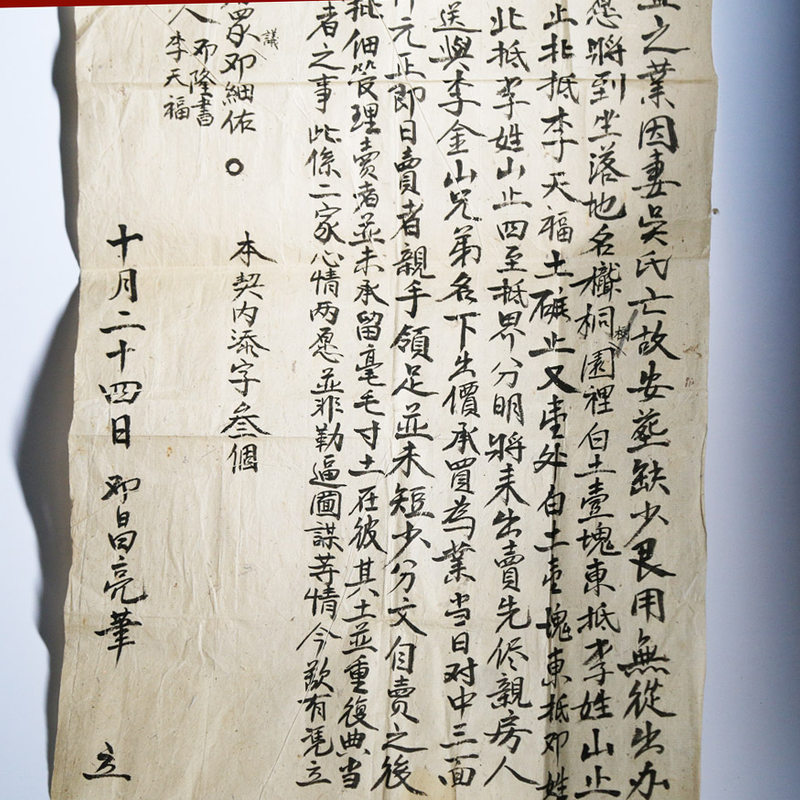 之業因妻吳氏亡故安葬缺少畏用無從出办
愿將到坐落地名櫼桐園裡白土壹塊東抵李姓山止
止北抵李天福土磜止又壹处白土壹塊東抵邓姓
北抵李姓山止四至抵界分明將来出賣先侭親房人
送與李金山兄弟名下出價承買為業当日对中三面
元正即日賣者親手領足並未短少分文自賣之後
批佃管理賣者並未承留毫毛寸土在彼其土並重復典当
者之事此係二家心情两愿並非勒逼圖謀等情今欲有凭立
本契内添字叁個
議
眾邓細佑
邓隆書
人李天福
十月二十四日邓昌亮筆 立